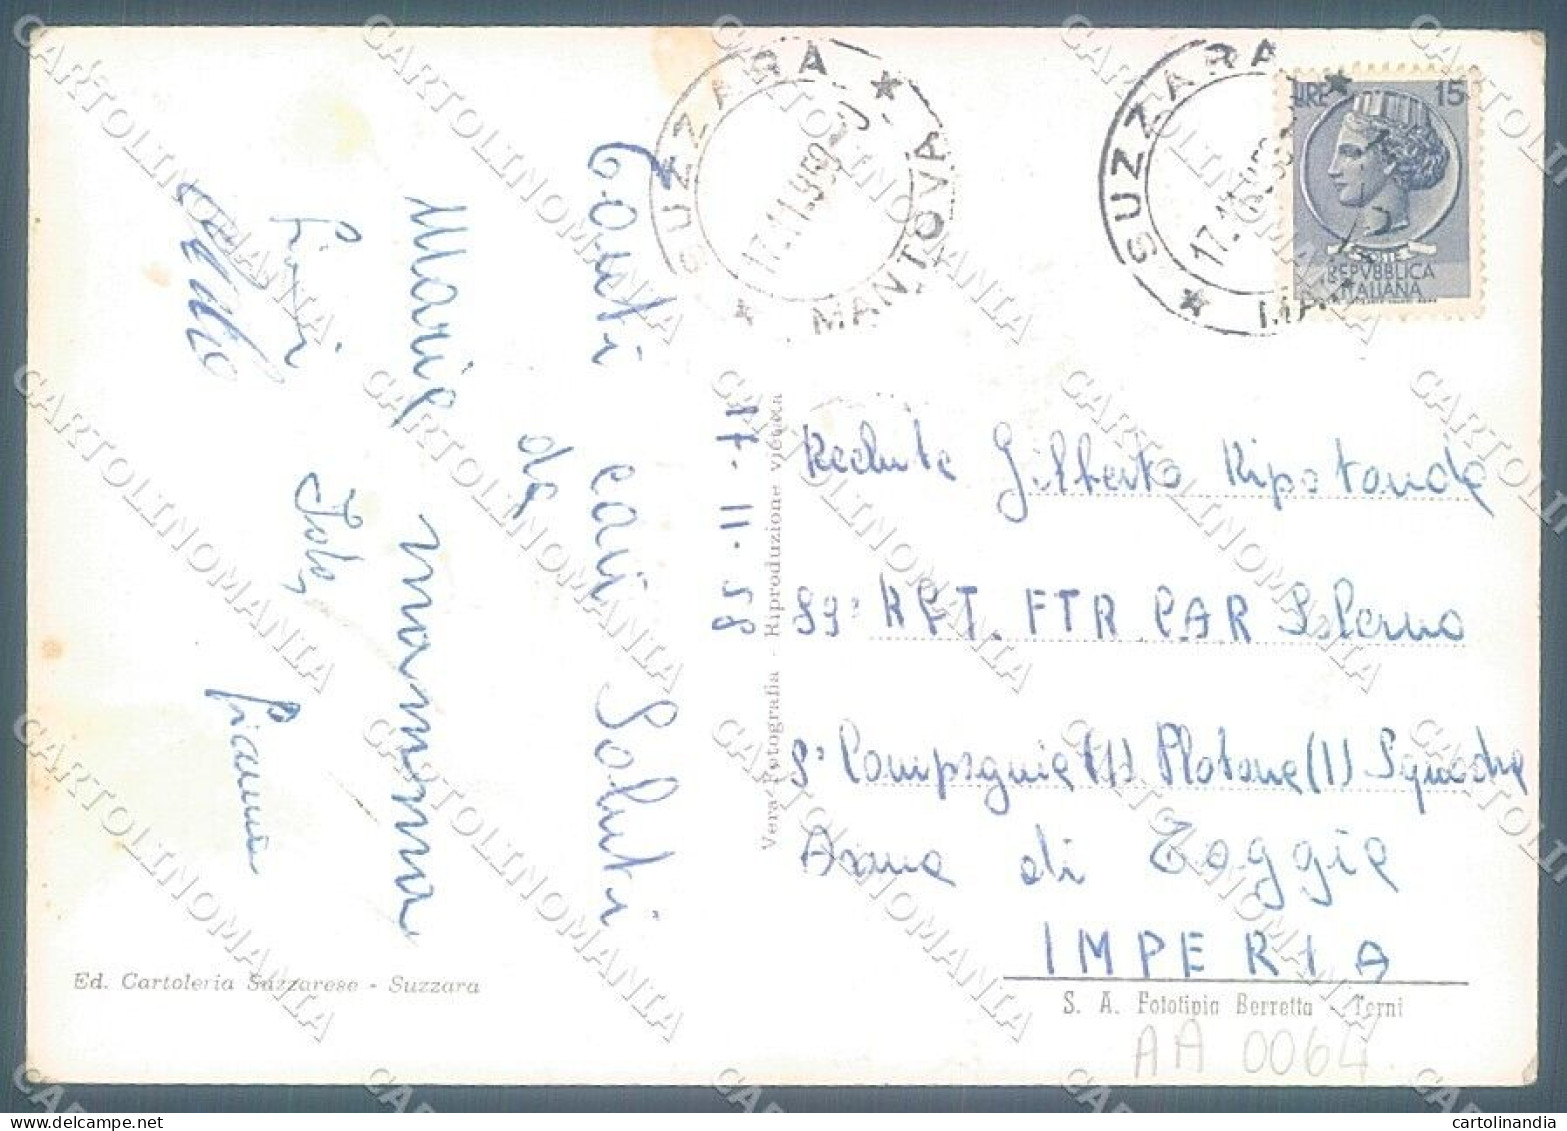 SUZZARA
17.11.1959
MANTOVA
SUZZARA
LIRE 15
REPVBBLICA
ITALIANA
Tanti cari Saluti
da
Maria mamma
17-11-59
Vera Fotografia - Riproduzione vietata
Recluta Gilberto Ripotanda
89° RGT. FTR C.A.R Salerno
9° Compagnia (1) Plotone (1) Squadra
Arma di Taggia
IMPERIA
Ed. Cartoleria Suzzarese - Suzzara
S. A. Fototipia Berretta - Terni
AA 0064
CARTOLINOMANIA
cartolinandia